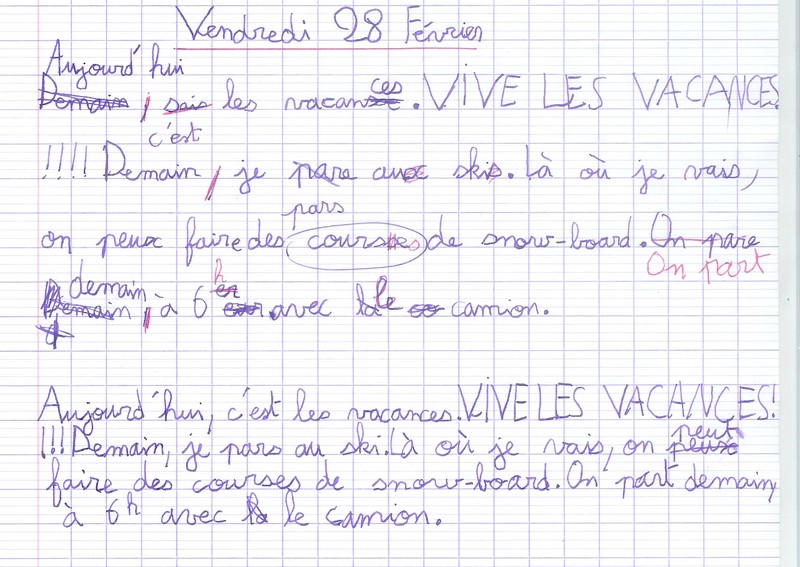 Vendredi 28 Février
Aujourd'hui
Demain, sais les vacances. VIVE LES VACANCES
c'est
!!!! Demain, je pare aux skis. Là où je vais,
pars
on peux faire des courses de snow-board. On pare
On part
demain
Demain, à 6 h avec la le camion.
Aujourd'hui, c'est les vacances. VIVE LES VACANCES!
!!! Demain, je pars au ski. Là où je vais, on peux peut
faire des courses de snow-board. On part demain
à 6h avec la le camion.